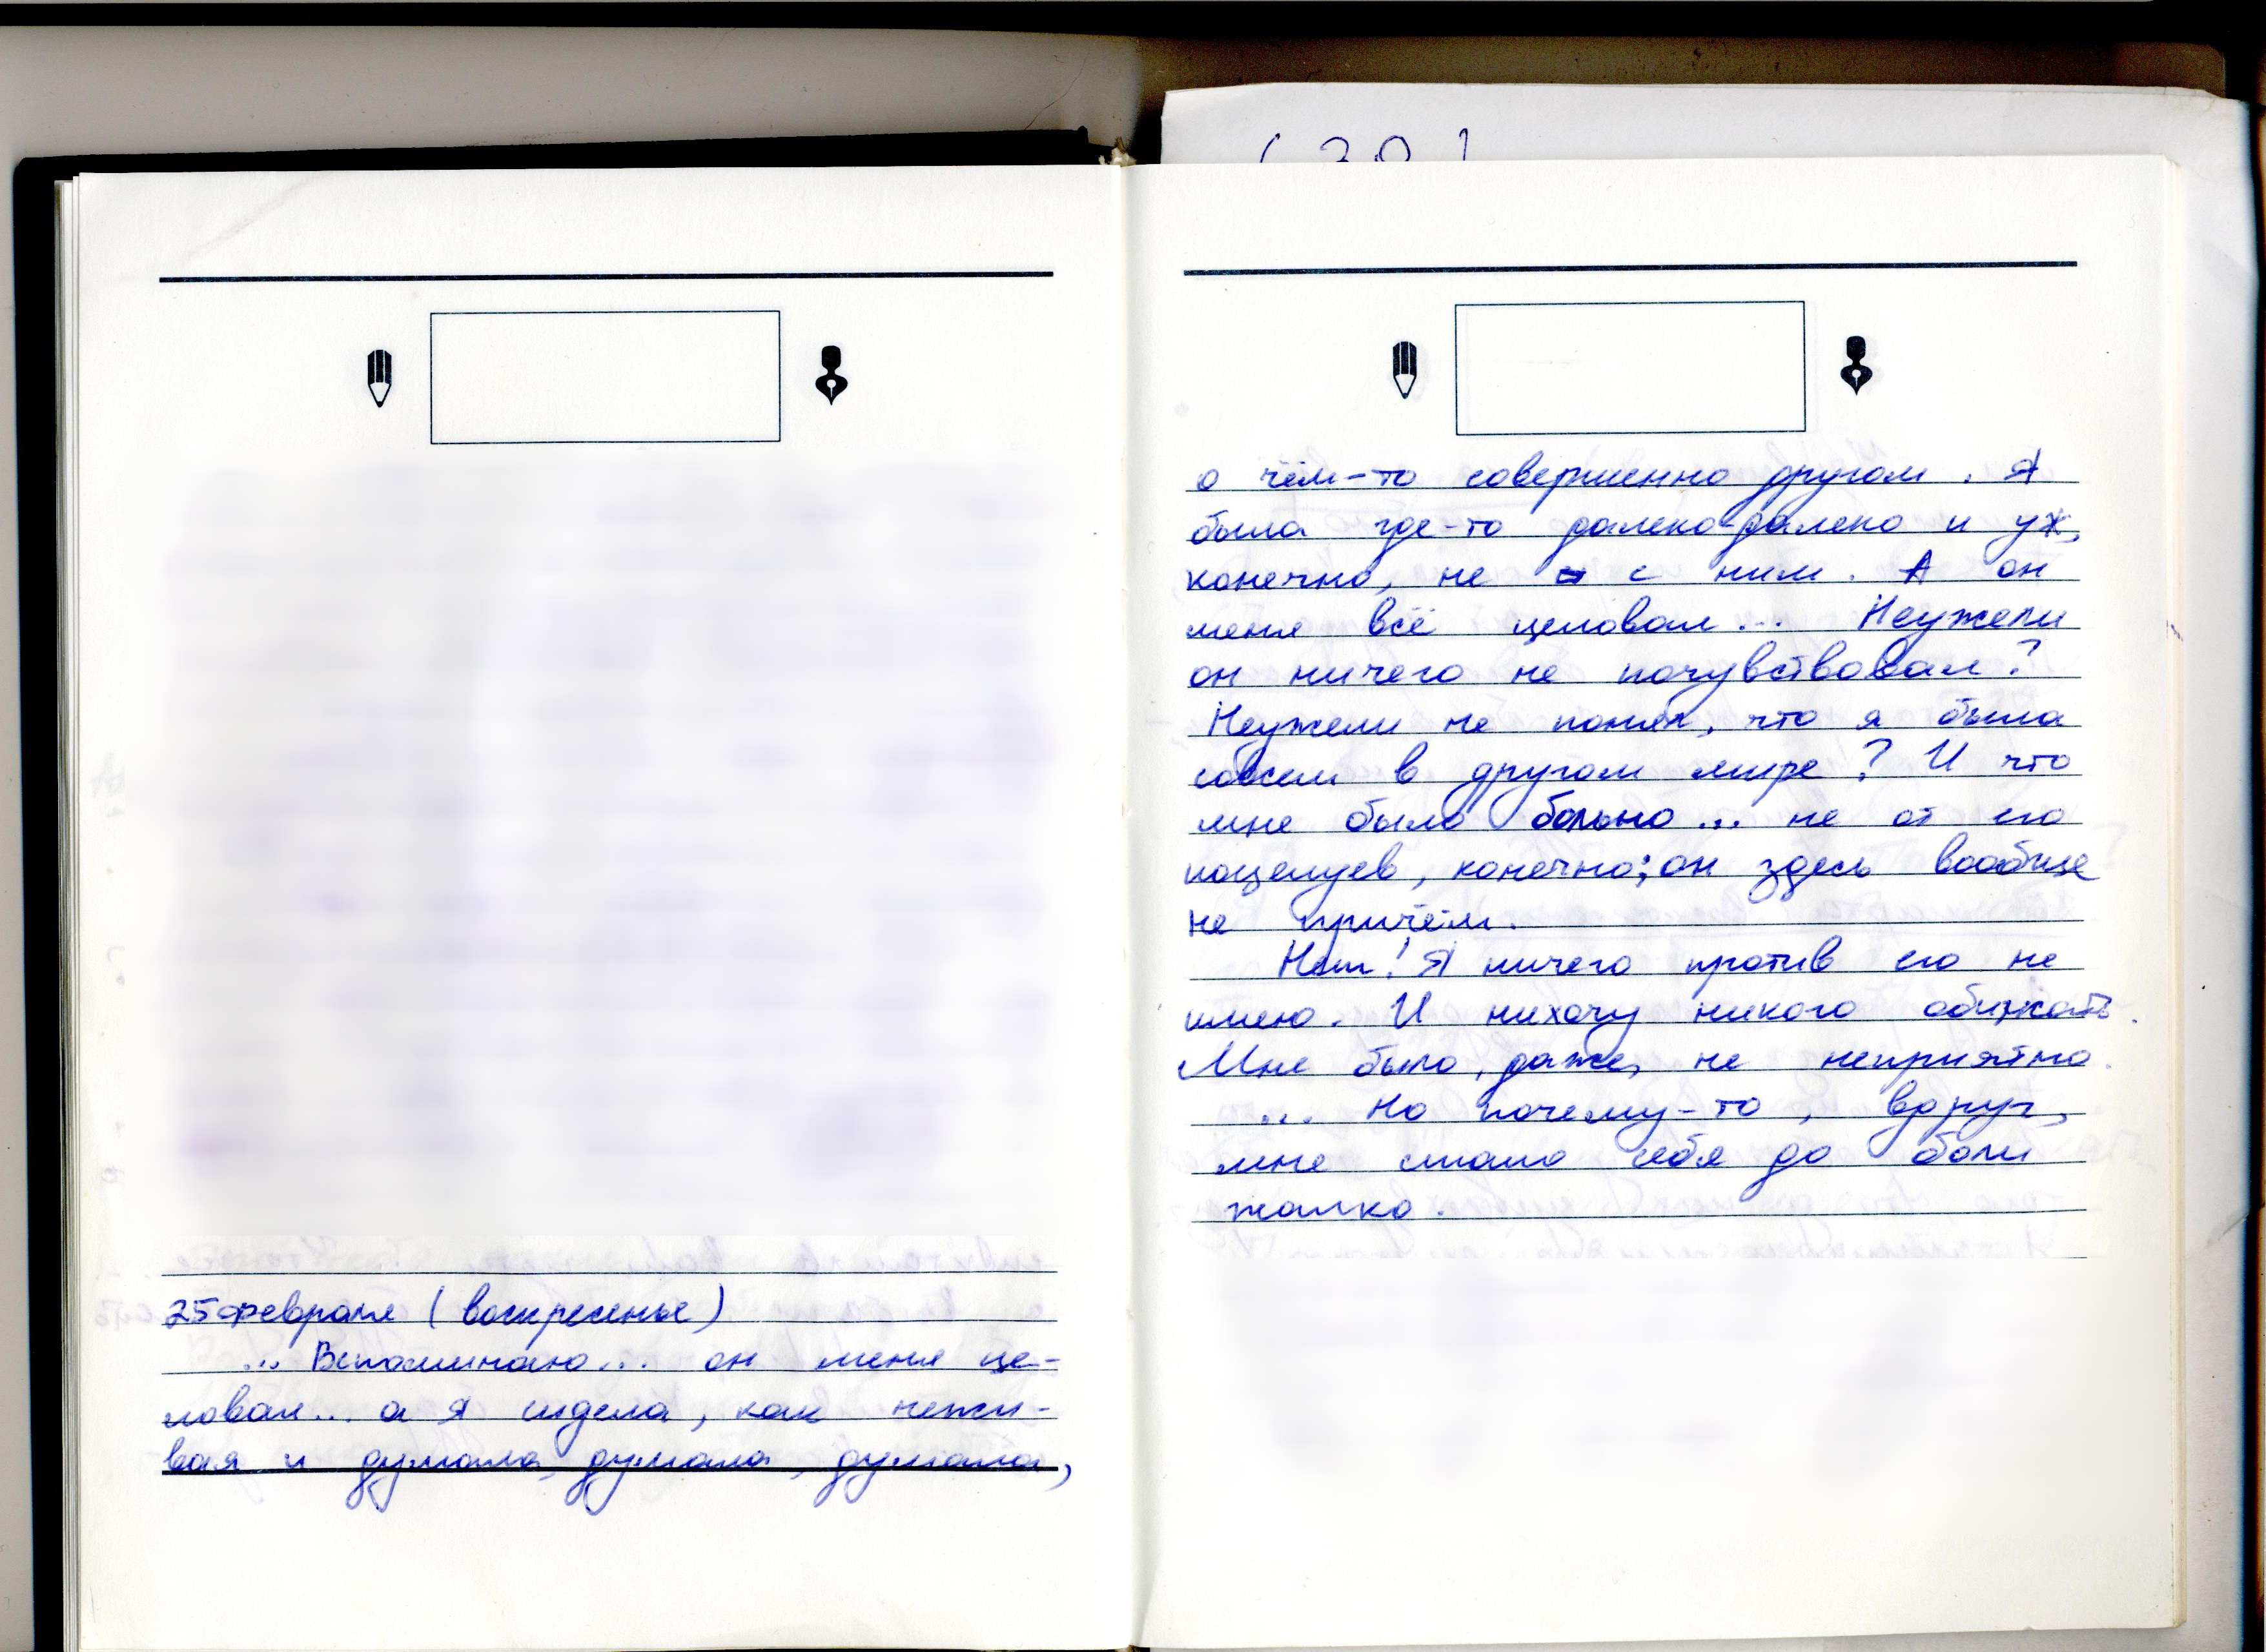 25 февраля (воскресенье)
... Вспоминаю... он меня це-
ловал... а я сидела, как нежи-
вая и думала, думала, думала,
о чём-то совершенно другом. Я
была где-то далеко-далеко и уж,
конечно, не с ним. А он
меня всё целовал... Неужели
он ничего не почувствовал?
Неужели не понял, что я была
совсем в другом мире? И что
мне было больно... не от его
поцелуев, конечно; он здесь вообще
не причём.
Нет! Я ничего против его не
имею. И нихочу никого обижать.
Мне было, даже, не неприятно.
... Но почему-то, вдруг,
мне стало себя до боли
жалко.